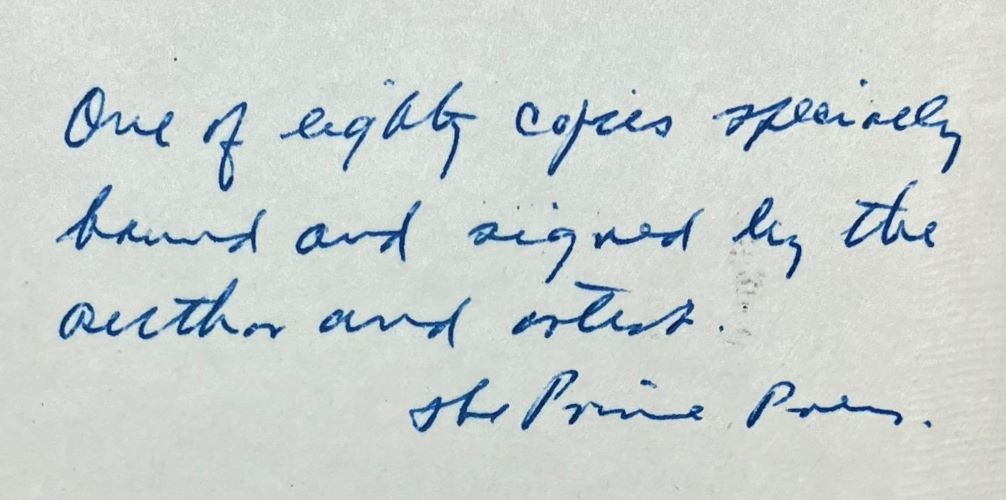 One of eighty copies specially
bound and signed by the
author and artist.
The Prime Press.